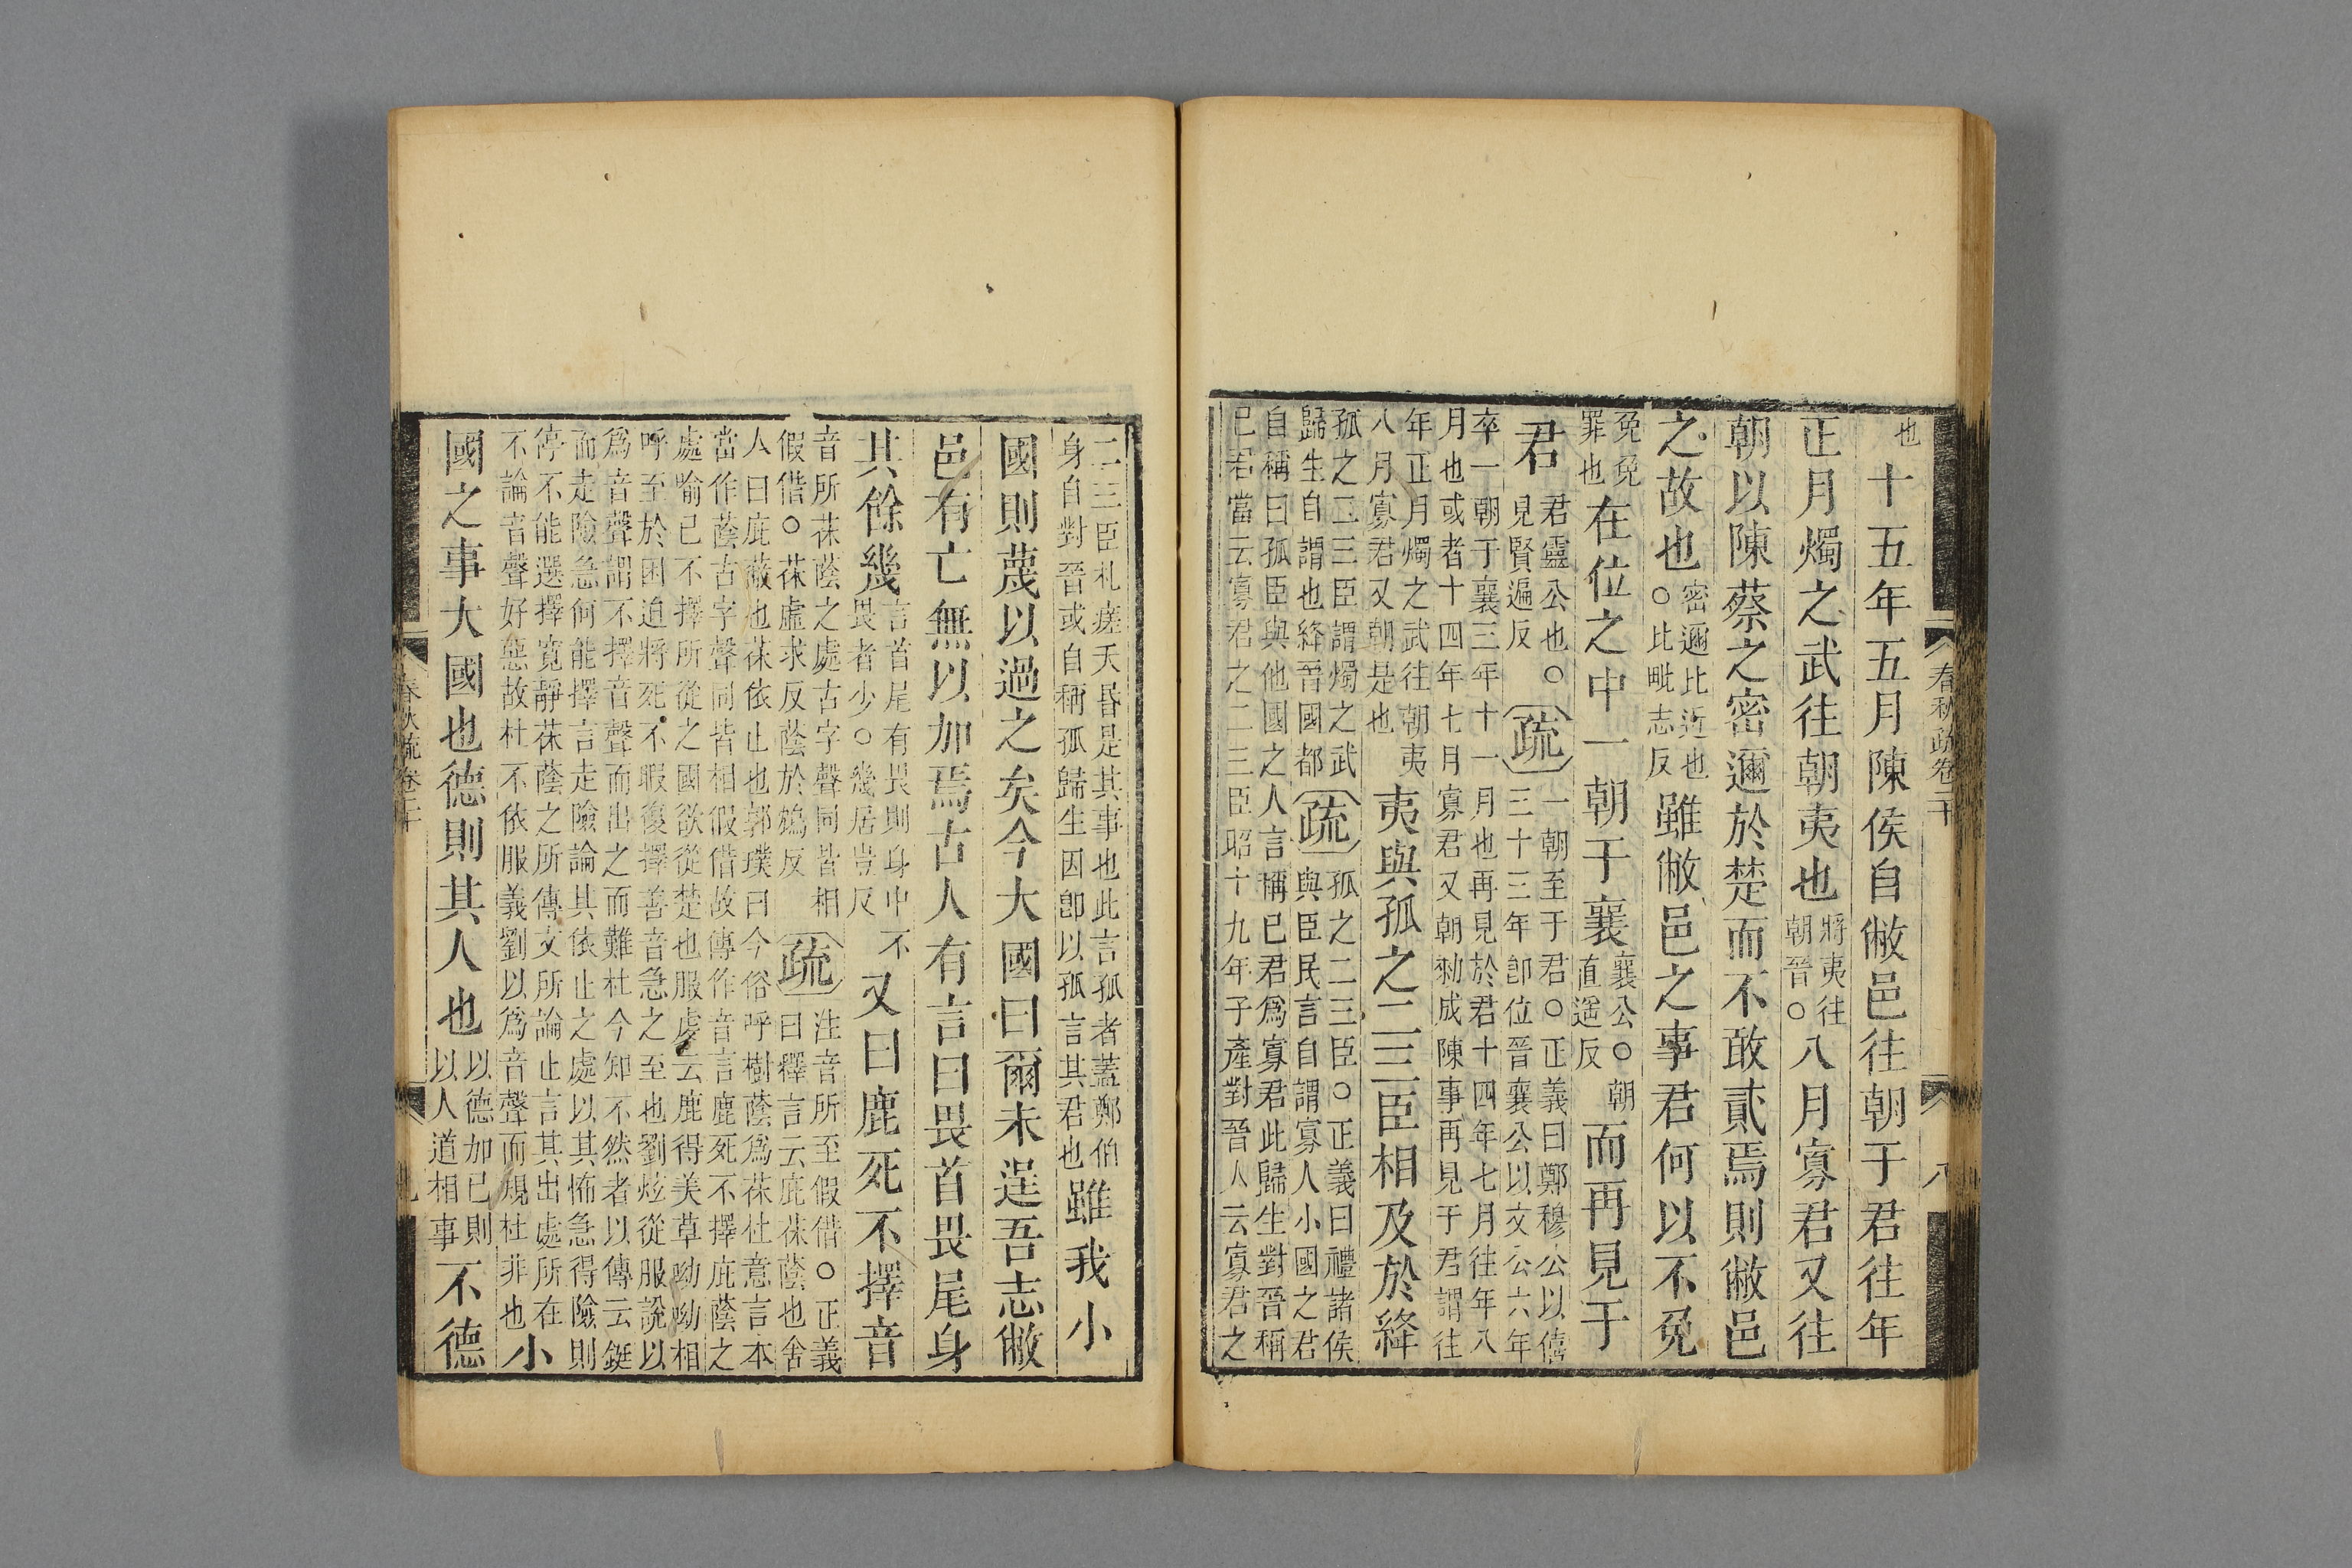 也十五年五月陳侯自敝邑往朝于君往年
正月燭之武往朝夷也將夷往朝晉○八月寡君又往
朝以陳蔡之密邇於楚而不敢貳焉則敝邑
之故也密邇比近也○比毗志反雖敝邑之事君何以不免
免免罪也在位之中一朝于襄襄公○朝直遥反而再見于
君君靈公也○見賢遍反疏一朝至于君○正義曰鄭穆公以僖三十三年即位晉襄公以文公六年
卒一朝于襄三年十一月也再見於君十四年七月往年八
月也或者十四年七月寡君又朝勑成陳事再見于君謂往
年正月燭之武往朝夷八月寡君又朝是也夷與孤之二三臣相及於絳
孤之二三臣謂燭之武歸生自謂也絳晉國都疏孤之二三臣○正義曰禮諸侯與臣民言自謂寡人小國之君
自稱曰孤臣與他國之人言稱已君爲寡君此歸生對晉稱
已君當云寡君之二三臣昭十九年子產對晉人云寡君之
二三臣札瘥夭昏是其事也此言孤者蓋鄭伯
身自對晉或自稱孤歸生因卽以孤言其君也雖我小
國則蔑以過之矣今大國曰爾未逞吾志敝
邑有亡無以加焉古人有言曰畏首畏尾身
其餘幾言首尾有畏則身中不畏者少○幾居豈反又曰鹿死不擇音
音所茠蔭之處古字聲同皆相假借○茠虛求反蔭於鴆反疏注音所至假借○正義曰釋言云庇茠蔭也舍
人曰庇蔽也茠依止也郭璞曰今俗呼樹蔭爲茠杜意言本
當作蔭古字聲同皆相假借故傳作音言鹿死不擇庇蔭之
處喻已不擇所從之國欲從楚也服虔云鹿得美草呦呦相
呼至於困迫將死不暇復擇善音急之至也劉炫從服說以
爲音聲謂不擇音聲而出之而難杜今知不然者以傳云鋌
而走險急何能擇言走險論其依止之處以其怖急得險則
停不能選擇寬靜茠蔭之所傳文所論止言其出處所在
不論音聲好惡故杜不依服義劉以爲音聲而規杜非也小
國之事大國也德則其人也以德加已則以人道相事不德
春秋疏卷二十
八
春秋疏卷二十
九